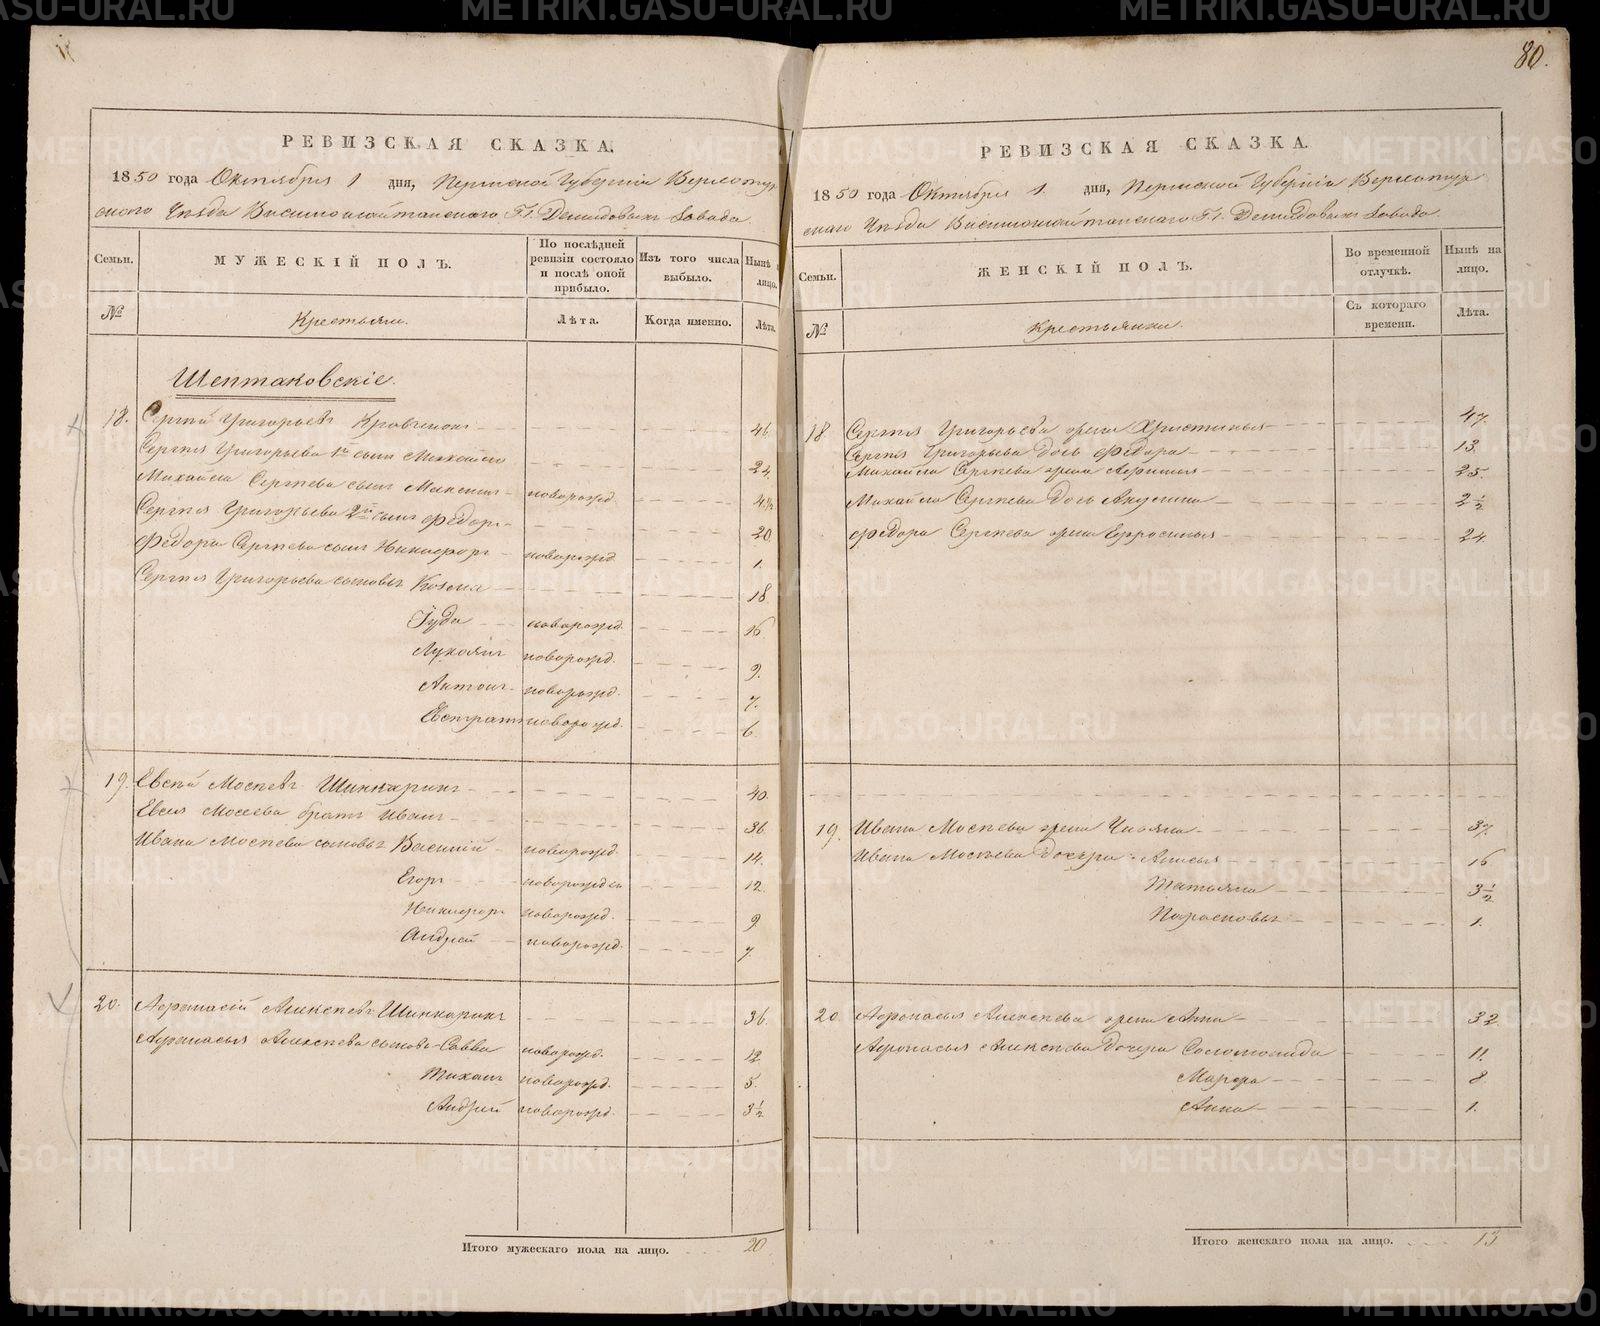 80.
РЕВИЗСКАЯ СКАЗКА.
1850 года Октября 1 дня, Пермской Губерніи Верхотур
скаго Уѣзда Висимошайтанскаго Гг. Демидовыхъ Завода.
Семьи.
МУЖЕСКІЙ ПОЛЪ.
По послѣдней ревизіи состояло и послѣ оной прибыло.
Изъ того числа выбыло.
Нынѣ лицо.
№
Крестьяне.
Лѣта.
Когда именно.
Лѣта.
Шептаковскіе.
18. Сергѣй Григорьевъ 46.
Сергѣя Григорьева 1й сынъ Михайло 24.
Михайла Сергѣева сынъ Максимъ новорожд. 4½
Сергѣя Григорьева 2й сынъ Федоръ 20
Федора Сергѣева сынъ Никифоръ новорожд. 1.
Сергѣя Григорьева сыновья Козма 18
Іуда новорожд. 16
Лукоянъ новорожд. 9.
Антонъ новорожд. 7.
Евстратъ новорожд. 6
19. Евсѣй Мосѣевъ Шинкаринъ 40.
Евсея Мосеева братъ Иванъ 36
Ивана Мосѣева сыновья Василій новорожд. 14.
Егоръ новорожден 12.
Никифоръ новорожд. 9
Андрей новорожд. 7.
20. Афонасій Алексѣевъ Шинкаринъ 36.
Афонасья Алексѣева сыновья Савва новорожд. 12
Тихонъ новорожд. 5.
Андрей новорожд. 3½
Итого мужескаго пола на лицо. 20
РЕВИЗСКАЯ СКАЗКА.
1850 года Октября 1 дня, Пермской Губерніи Верхотур
скаго Уѣзда Висимошайтанскаго Гг. Демидовыхъ Завода.
Семьи.
ЖЕНСКІЙ ПОЛЪ.
Во временной отлучкѣ.
Нынѣ на лицо.
№
Крестьянки.
Съ котораго времени.
Лѣта.
18 Сергѣя Григорьева жена Христинья 47.
Сергѣя Григорьева дочь Федора 13.
Михайла Сергѣева жена Афимья 25
Михайла Сергѣева дочь Акулина 2½
Федора Сергѣева жена Ефросинья 24
19. Ивана Мосѣева жена Ульяна 37.
Ивана Мосѣева дочери Анисья 16
Татьяна 3½
Парасковья 1.
20 Афонасья Алексѣева жена Анна 32
Афонасья Алексѣева дочери Соломонида 11.
Марфа 8
Анна 1.
Итого женскаго пола на лицо. 13
METRIKI.GASO-URAL.RU